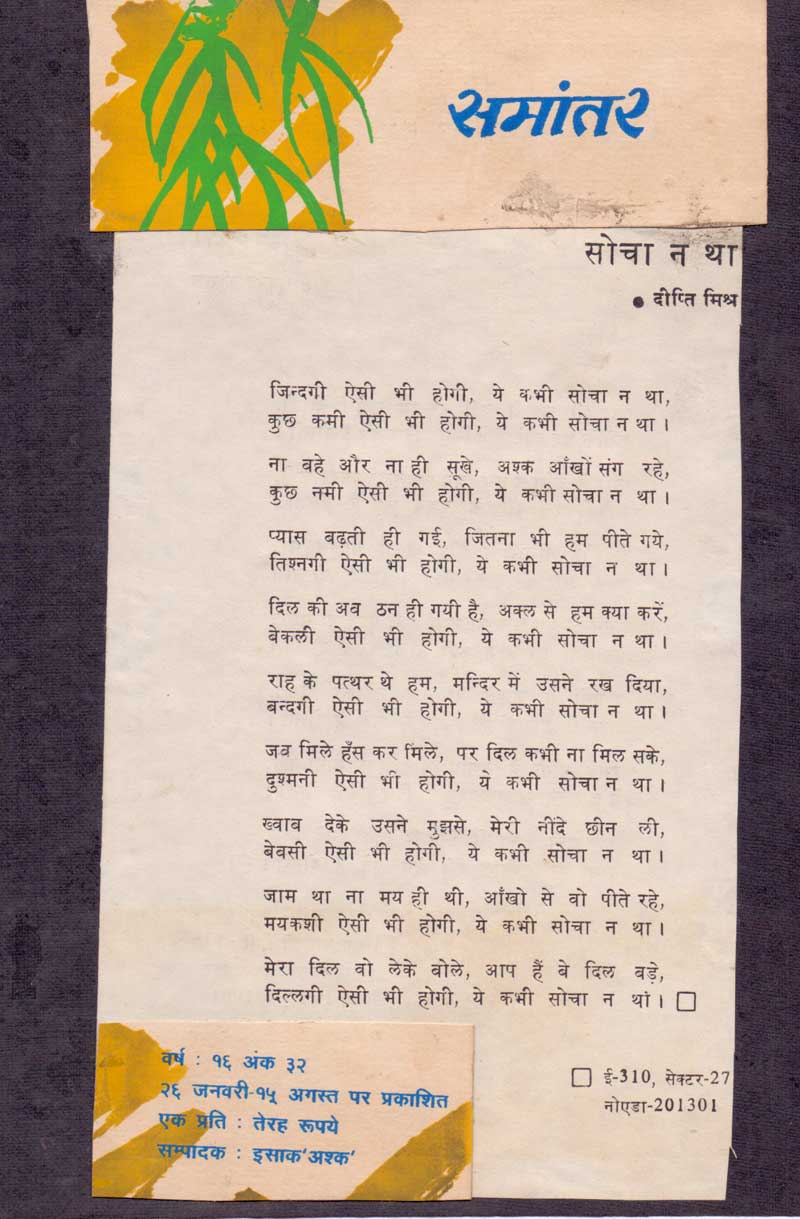 समांतर
सोचा न था
● दीप्ति मिश्र
जिन्दगी ऐसी भी होगी, ये कभी सोचा न था,
कुछ कमी ऐसी भी होगी, ये कभी सोचा न था।
ना बहे और ना ही सूखे, अश्क आँखों संग रहे,
कुछ नमी ऐसी भी होगी, ये कभी सोचा न था।
प्यास बढ़ती ही गई, जितना भी हम पीते गये,
तिश्नगी ऐसी भी होगी, ये कभी सोचा न था।
दिल की अब ठन ही गयी है, अक्ल से हम क्या करें,
बेकली ऐसी भी होगी, ये कभी सोचा न था।
राह के पत्थर थे हम, मन्दिर में उसने रख दिया,
बन्दगी ऐसी भी होगी, ये कभी सोचा न था।
जब मिले हँस कर मिले, पर दिल कभी ना मिल सके,
दुश्मनी ऐसी भी होगी, ये कभी सोचा न था।
ख्वाब देके उसने मुझसे, मेरी नींदे छीन ली,
बेबसी ऐसी भी होगी, ये कभी सोचा न था।
जाम था ना मय ही थी, आँखो से वो पीते रहे,
मयकशी ऐसी भी होगी, ये कभी सोचा न था।
मेरा दिल वो लेके बोले, आप हैं बे दिल बड़े,
दिल्लगी ऐसी भी होगी, ये कभी सोचा न थां। □
□ ई-310, सेक्टर-27
नोएडा-201301
वर्ष : १६ अंक ३२
२६ जनवरी-१५ अगस्त पर प्रकाशित
एक प्रति : तेरह रूपये
सम्पादक : इसाक'अश्क'